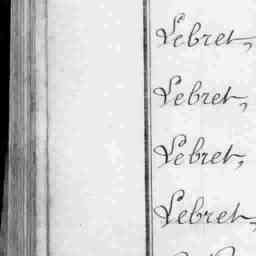 Lebret,
Lebret,
Lebret,
Lebret,